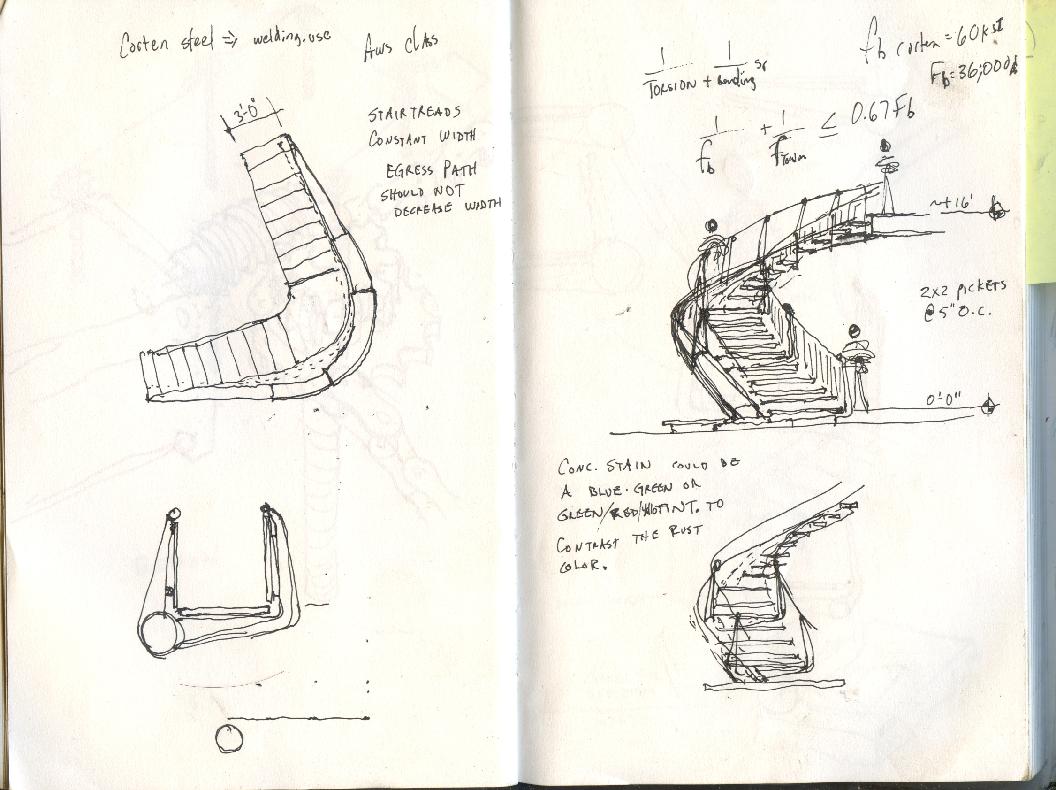 Corten steel ⇒ welding.use
AWS Class
3'-0"
STAIRTREADS
CONSTANT WIDTH
EGRESS PATH
SHOULD NOT
DECREASE WIDTH
1 1
TORSION + Bending
fb corten = 60KSI
Fb = 36,000#
1 + 1 ≤ 0.67Fb
fb f
~+16'
2x2 PICKETS
@ 5" O.C.
0'0"
CONC. STAIN COULD BE
A BLUE-GREEN OR
GREEN/RED/ TINT. TO
CONTRAST THE RUST
COLOR.